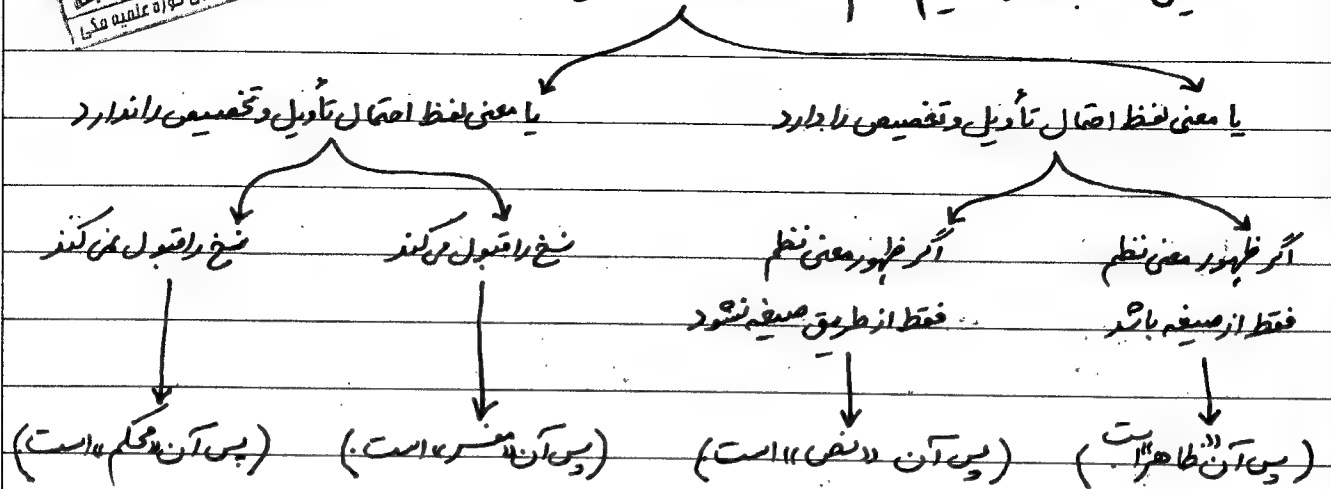 حوزه علمیه مکی
یا معنی لفظ احتمال تأویل و تخصیص را دارد
یا معنی لفظ احتمال تأویل و تخصیص را ندارد
اگر ظهور معنی نظم
فقط از صیغه باشد
اگر ظهور معنی نظم
فقط از طریق صیغه نشود
نسخ را قبول می کند
نسخ را قبول نمی کند
(پس آن «ظاهر» است)
(پس آن «نص» است)
(پس آن «مفسر» است.)
(پس آن «محکم» است)